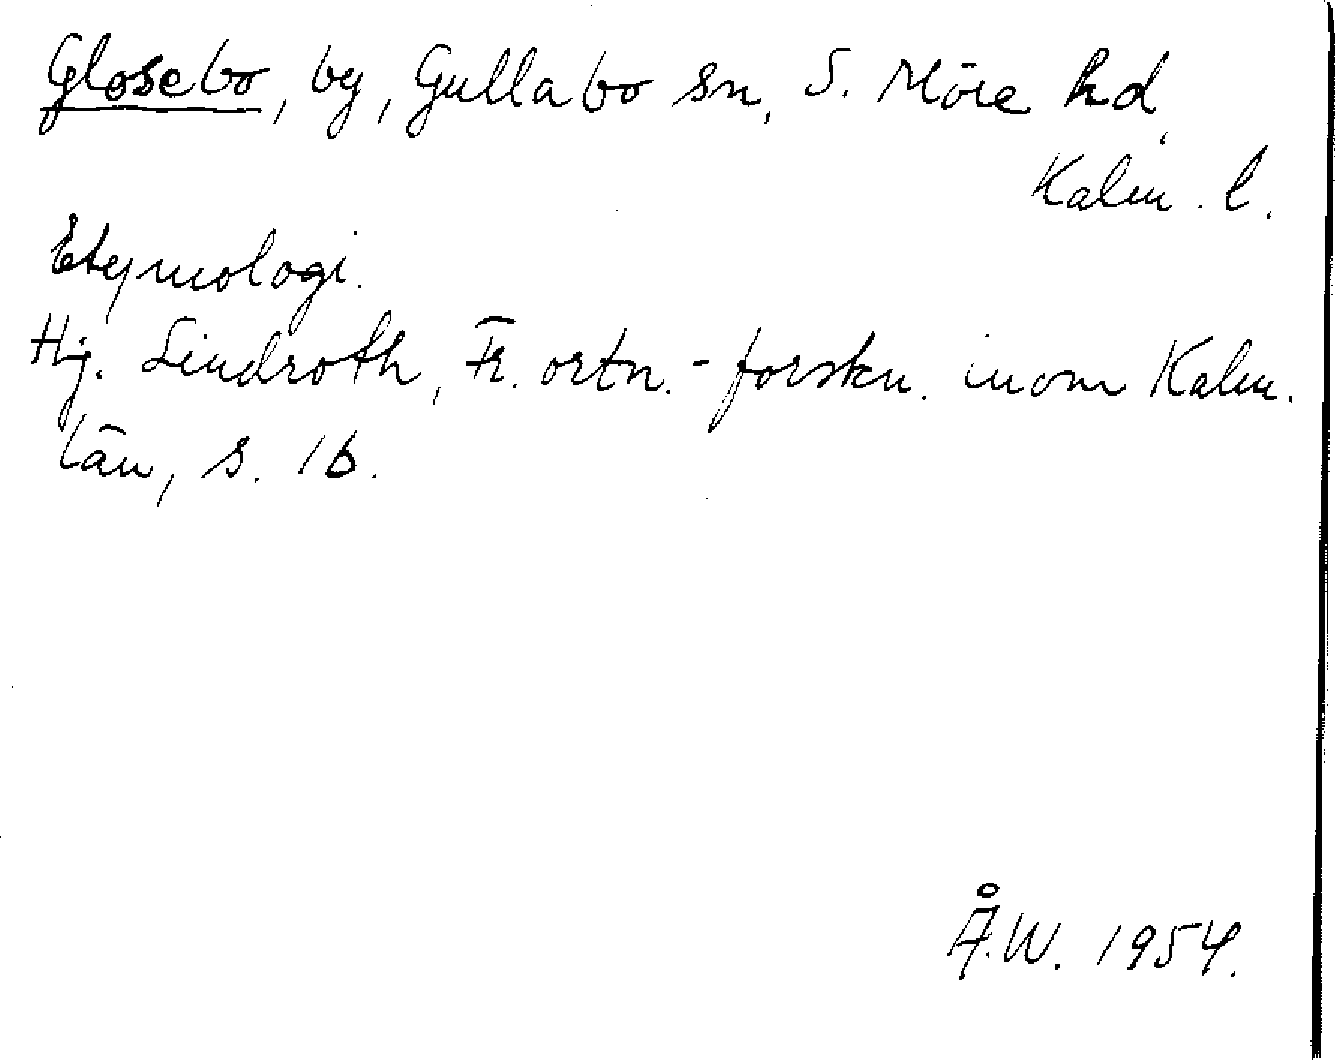 Glosebo, by, Gullabo sn, S. Möre hd,
Kalm. l.
Etymologi.
Hj. Lindroth, Fr. ortn.-forskn. inom Kalm.
län, s. 16.
Å.W. 1954.